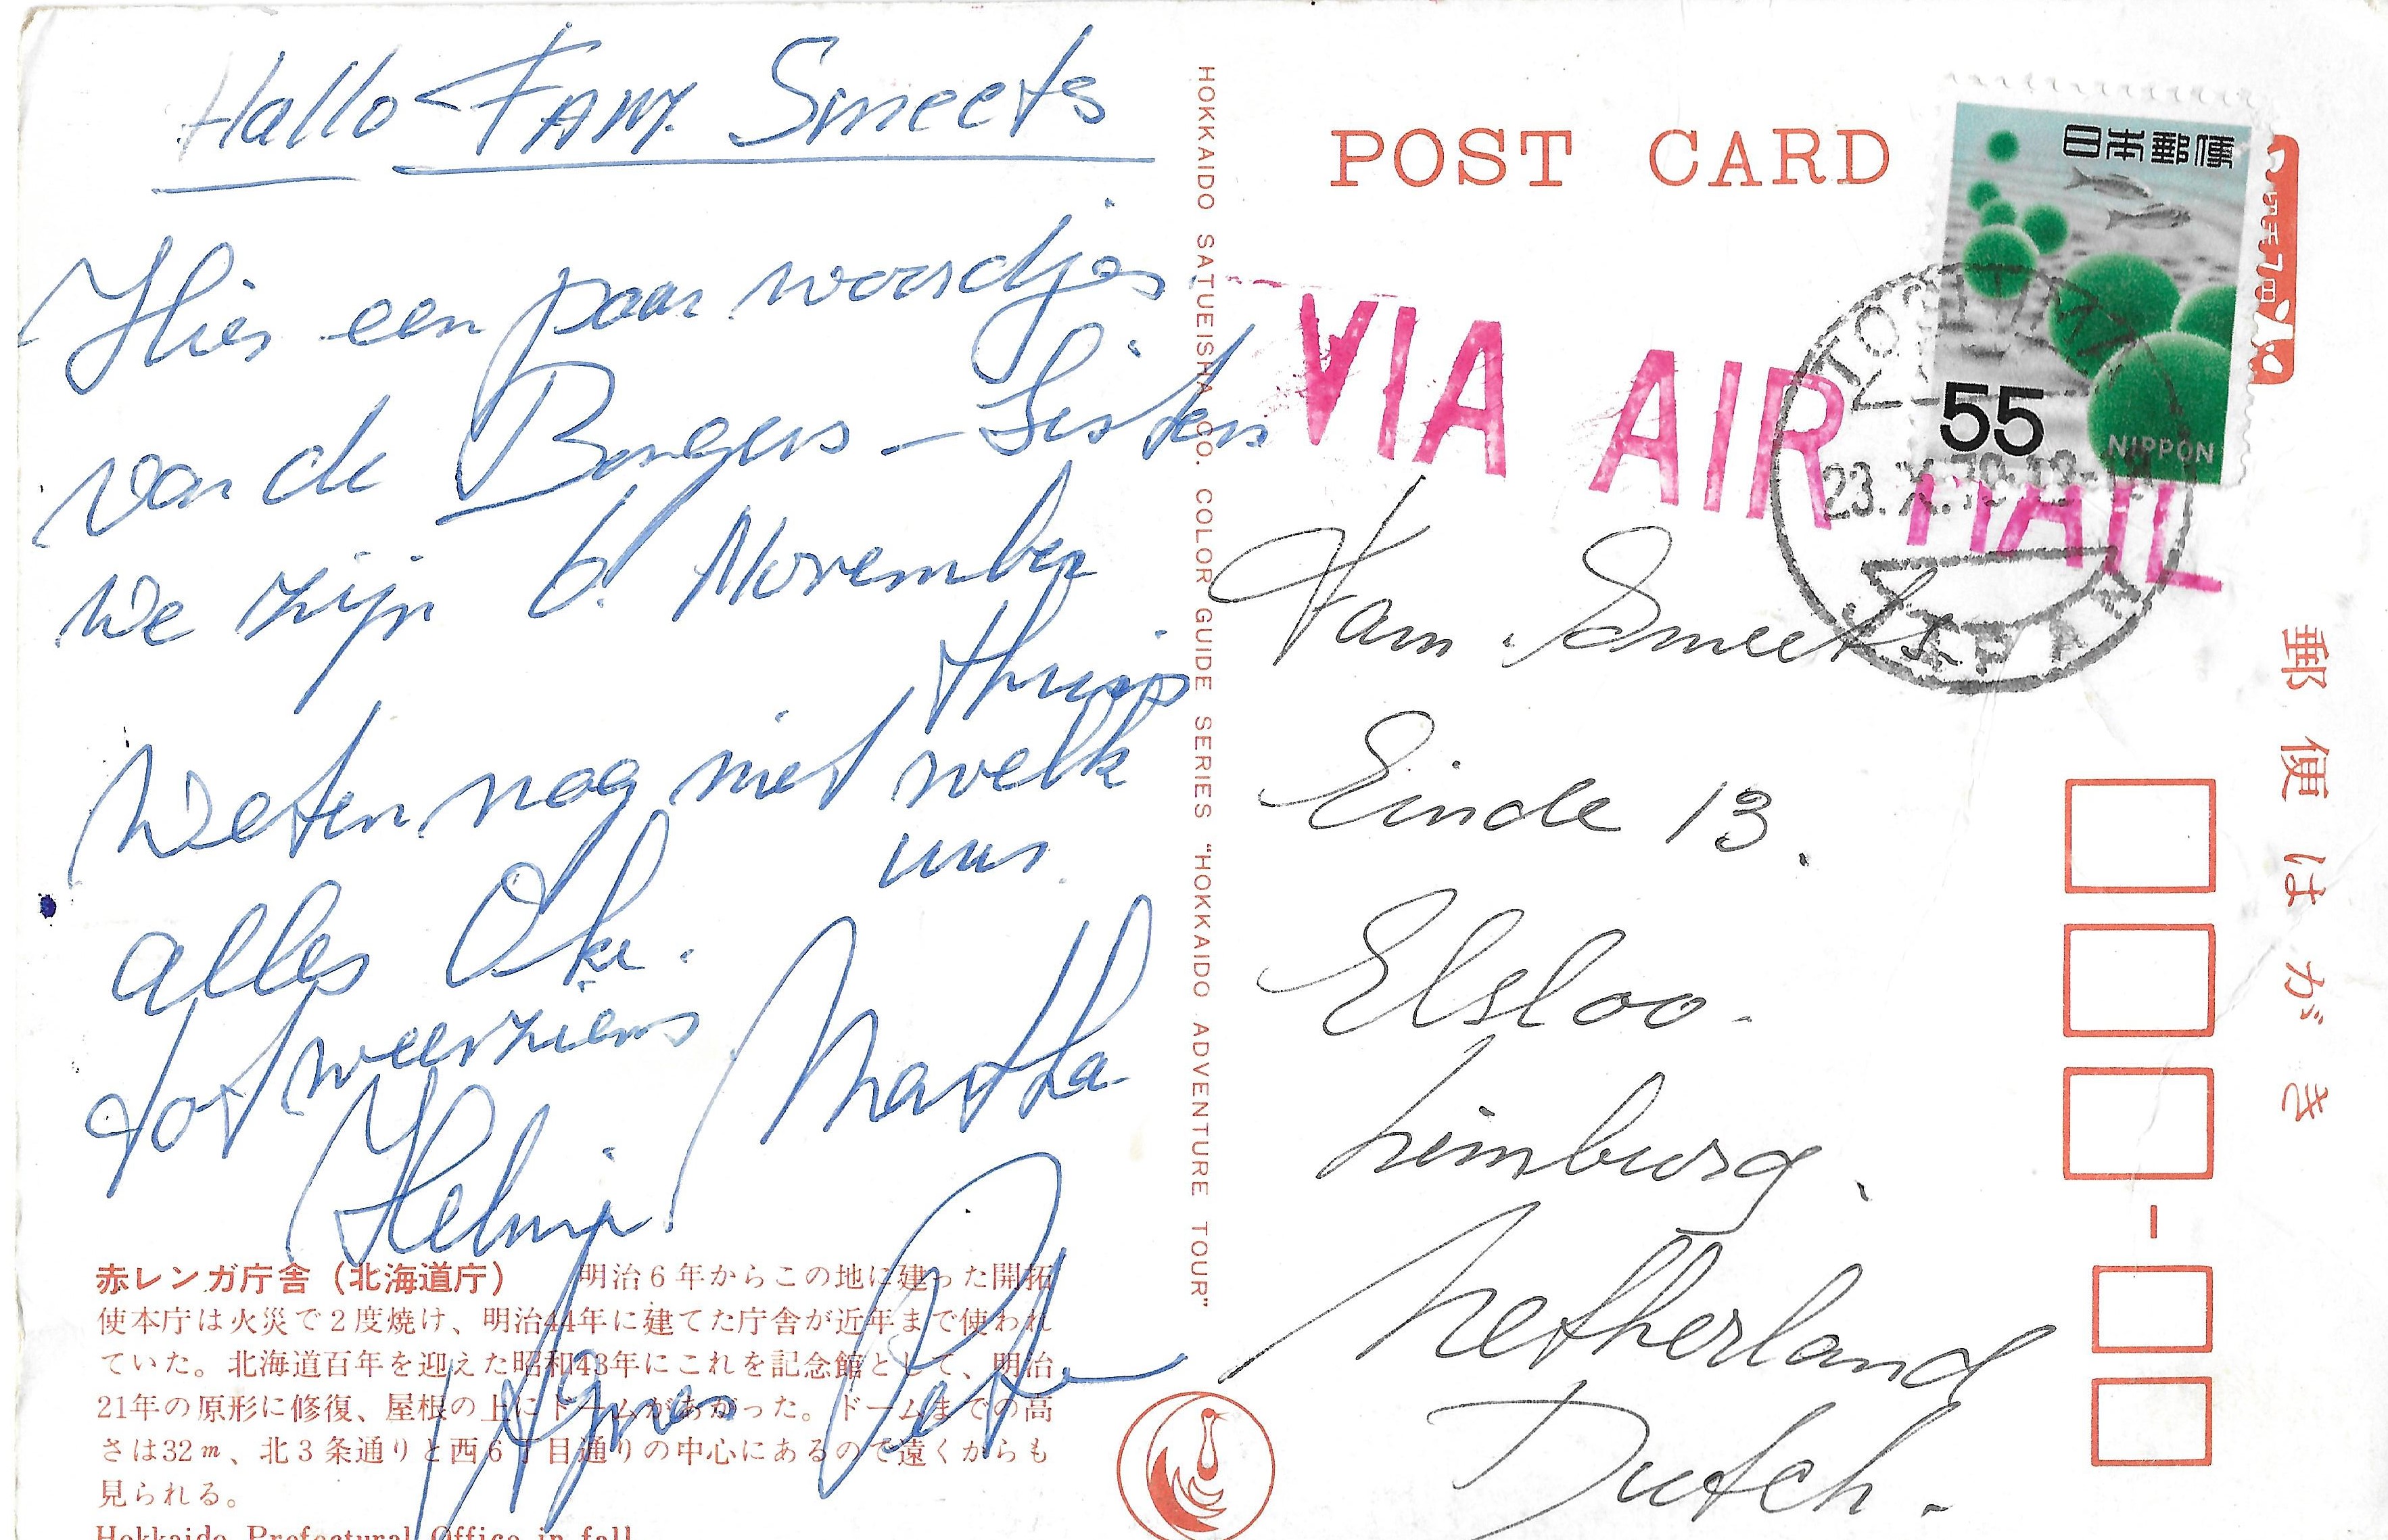 Hallo FAM. Smeets
Hier een paar woordjes
van de Bongers - Sisters
We zijn 6 November
thuis
Weten nog niet welk
uur.
alles Oke.
tot weerziens
Martha
Helmi
Agnes
赤レンガ庁舎（北海道庁） 明治6年からこの地に建った開拓
使本庁は火災で2度焼け、明治44年に建てた庁舎が近年まで使われ
ていた。北海道百年を迎えた昭和43年にこれを記念館として、明治
21年の原形に修復、屋根の上にドームがあがった。ドームまでの高
さは32m、北3条通りと西6丁目通りの中心にあるので遠くからも
見られる。
Hokkaido Prefectural Office in fall
HOKKAIDO SATUEISHA CO. COLOR GUIDE SERIES "HOKKAIDO ADVENTURE TOUR"
POST CARD
日本郵便
55
NIPPON
VIA AIR MAIL
23.X.79
JAPAN
Fam. Smeets.
Einde 13.
Elsloo.
Limburg.
Netherland
Dutch.
郵便はがき